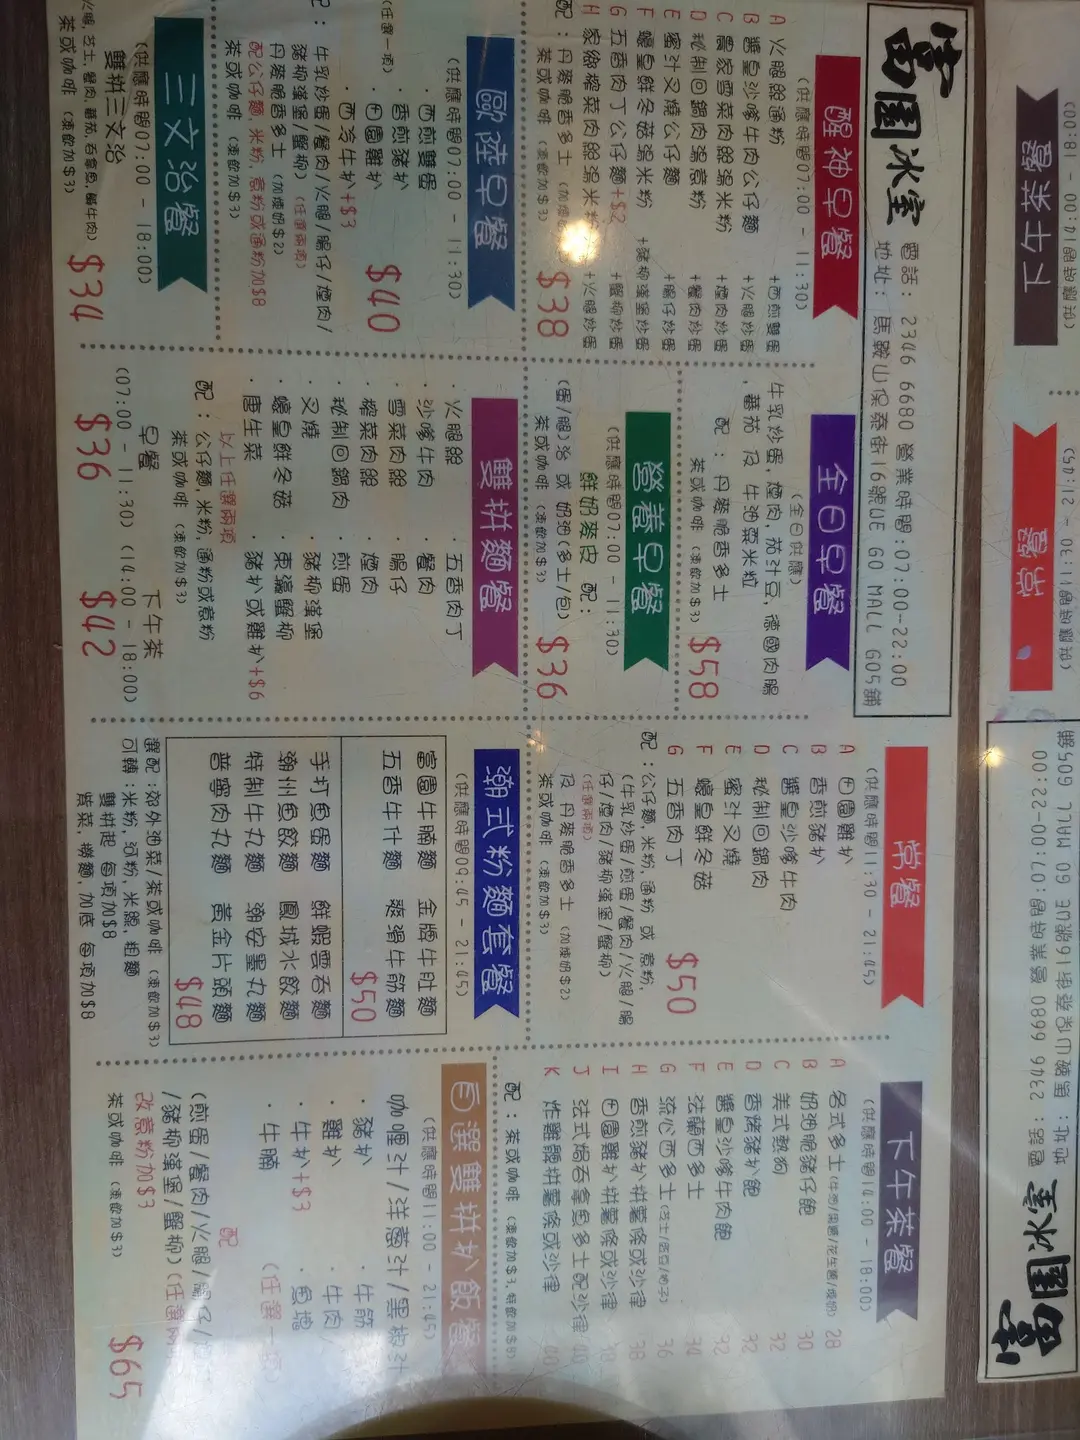 富園冰室
電話：2346 6680 營業時間:07:00-22:00
地址：馬鞍山保泰街16號WE GO MALL G05舖
醒神早餐
(供應時間07:00 - 11:30)
A 火腿絲通粉 +西煎雙蛋
B 醬皇沙嗲牛肉公仔麵 +火腿炒蛋
C 農家雪菜肉絲湯米粉 +煙肉炒蛋
D 秘制回鍋肉湯意粉 +蟹肉炒蛋
E 蜜汁叉燒公仔麵 +腸仔炒蛋
F 蠔皇鮮冬菇湯米粉 +豬柳漢堡炒蛋
G 五香肉丁公仔麵+$2 +蟹柳炒蛋
H 家鄉榨菜肉絲湯米粉 +火腿炒蛋
配：丹麥脆香多士
茶或咖啡 (凍飲加$3)
$38
全日早餐
(全日供應)
牛乳炒蛋, 煙肉, 茄汁豆, 德國肉腸
, 蕃茄 及 牛油粟米粒
配：丹麥脆香多士
茶或咖啡 (凍飲加$3)
$58
營養早餐
(供應時間07:00 - 11:30)
鮮奶麥皮 配：
(蛋/腿)治 或 奶油(多士/包)
茶或咖啡 (凍飲加$3)
$36
常餐
(供應時間11:30 - 21:45)
A 田園雞扒
B 香煎豬扒
C 醬皇沙嗲牛肉
D 秘制回鍋肉
E 蜜汁叉燒
F 蠔皇鮮冬菇
G 五香肉丁
$50
配：公仔麵, 米粉, 通粉 或 意粉,
(牛乳炒蛋/煎蛋/蟹肉/火腿/腸
仔/煙肉/豬柳漢堡/蟹柳)
(任選兩項)
及 丹麥脆香多士 (加煉奶$2)
茶或咖啡 (凍飲加$3)
下午茶餐
(供應時間14:00 - 18:00)
A 各式多士 28
B 奶油脆豬仔飽 30
C 美式熱狗 32
D 香烤豬扒飽 32
E 醬皇沙嗲牛肉飽 32
F 法蘭西多士 34
G 流心西多士 36
H 香煎豬扒拼薯條或沙律 38
I 田園雞扒拼薯條或沙律 38
J 法式焗吞拿魚多士配沙律 40
K 炸雞髀拼薯條或沙律 40
配：茶或咖啡 (凍飲加$3, 特飲加$8)
歐陸早餐
(供應時間07:00 - 11:30)
· 西煎雙蛋
· 香煎豬扒
· 田園雞扒
· 西冷牛扒+$3
(任選一項)
$40
配：
牛乳炒蛋/蟹肉/火腿/腸仔/煙肉/
豬柳漢堡/蟹柳) (任選兩項)
丹麥脆香多士 (加煉奶$2)
配公仔麵, 米粉, 意粉或通粉加$8
茶或咖啡 (凍飲加$3)
三文治餐
(供應時間07:00 - 18:00)
雙拼三文治
火腿, 芝士, 餐肉, 蕃茄, 吞拿魚, 鹹牛肉)
茶或咖啡 (凍飲加$3)
$34
雙拼麵餐
· 火腿絲 · 五香肉丁
· 沙嗲牛肉 · 蟹肉
· 雪菜肉絲 · 腸仔
· 榨菜肉絲 · 煙肉
· 秘制回鍋肉 · 煎蛋
· 叉燒 · 豬柳漢堡
· 蠔皇鮮冬菇 · 東瀛蟹柳
· 唐生菜 · 豬扒或雞扒+$6
以上任選兩項
配：公仔麵, 米粉, 通粉或意粉
茶或咖啡 (凍飲加$3)
早餐 下午茶
(07:00 - 11:30) (14:00 - 18:00)
$36 $42
潮式粉麵套餐
(供應時間09:45 - 21:45)
富園牛腩麵 金牌牛肚麵
五香牛什麵 爽滑牛筋麵
$50
手打魚蛋麵 鮮蝦雲吞麵
潮州魚餃麵 鳳城水餃麵
特制牛丸麵 潮安墨丸麵
普寧肉丸麵 黃金片頭麵
$48
選配：郊外油菜/茶或咖啡 (凍飲加$3)
可轉：米粉, 河粉, 米線, 粗麵
雙拼起 每項加$8
紫菜, 撈麵, 加底 每項加$8
自選雙拼扒飯餐
(供應時間11:00 - 21:45)
咖喱汁/洋蔥汁/黑椒汁
· 豬扒 · 牛筋
· 雞扒 · 牛肉
· 牛扒+$3 · 魚塊
· 牛腩 (任選一項)
配
(煎蛋/蟹肉/火腿/腸仔/
/豬柳漢堡/蟹柳) (任選
改意粉加$3
茶或咖啡 (凍飲加$3)
$65
下午茶餐
(供應時間14:00 - 18:00)
常餐
(供應時間11:30 - 21:45)
富園冰室
電話：2346 6680 營業時間:07:00-22:00
地址：馬鞍山保泰街16號WE GO MALL G05舖